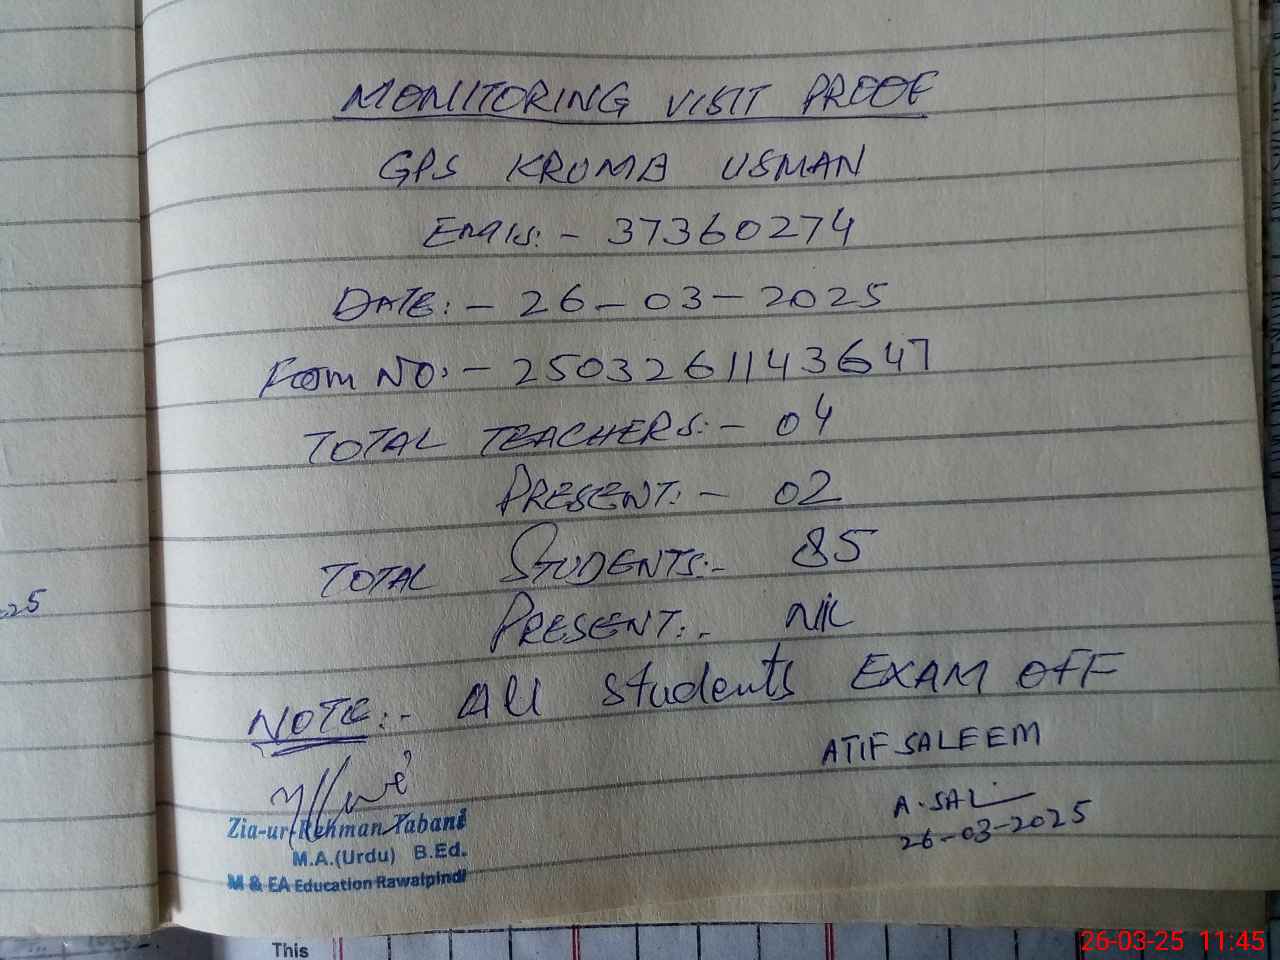 MONITORING VISIT PROOF
GPS KROMB USMAN
EMIS:- 37360274
DATE:- 26-03-2025
Form NO:- 25032611143647
TOTAL TEACHERS:- 04
PRESENT:- 02
TOTAL STUDENTS:- 85
PRESENT:- NIL
NOTE:- All students EXAM OFF
ATIF SALEEM
A.SAL
26-03-2025
Zia-ur-Rehman Tabani
M.A.(Urdu) B.Ed.
M & EA Education Rawalpindi
25
This
26-03-25 11:45